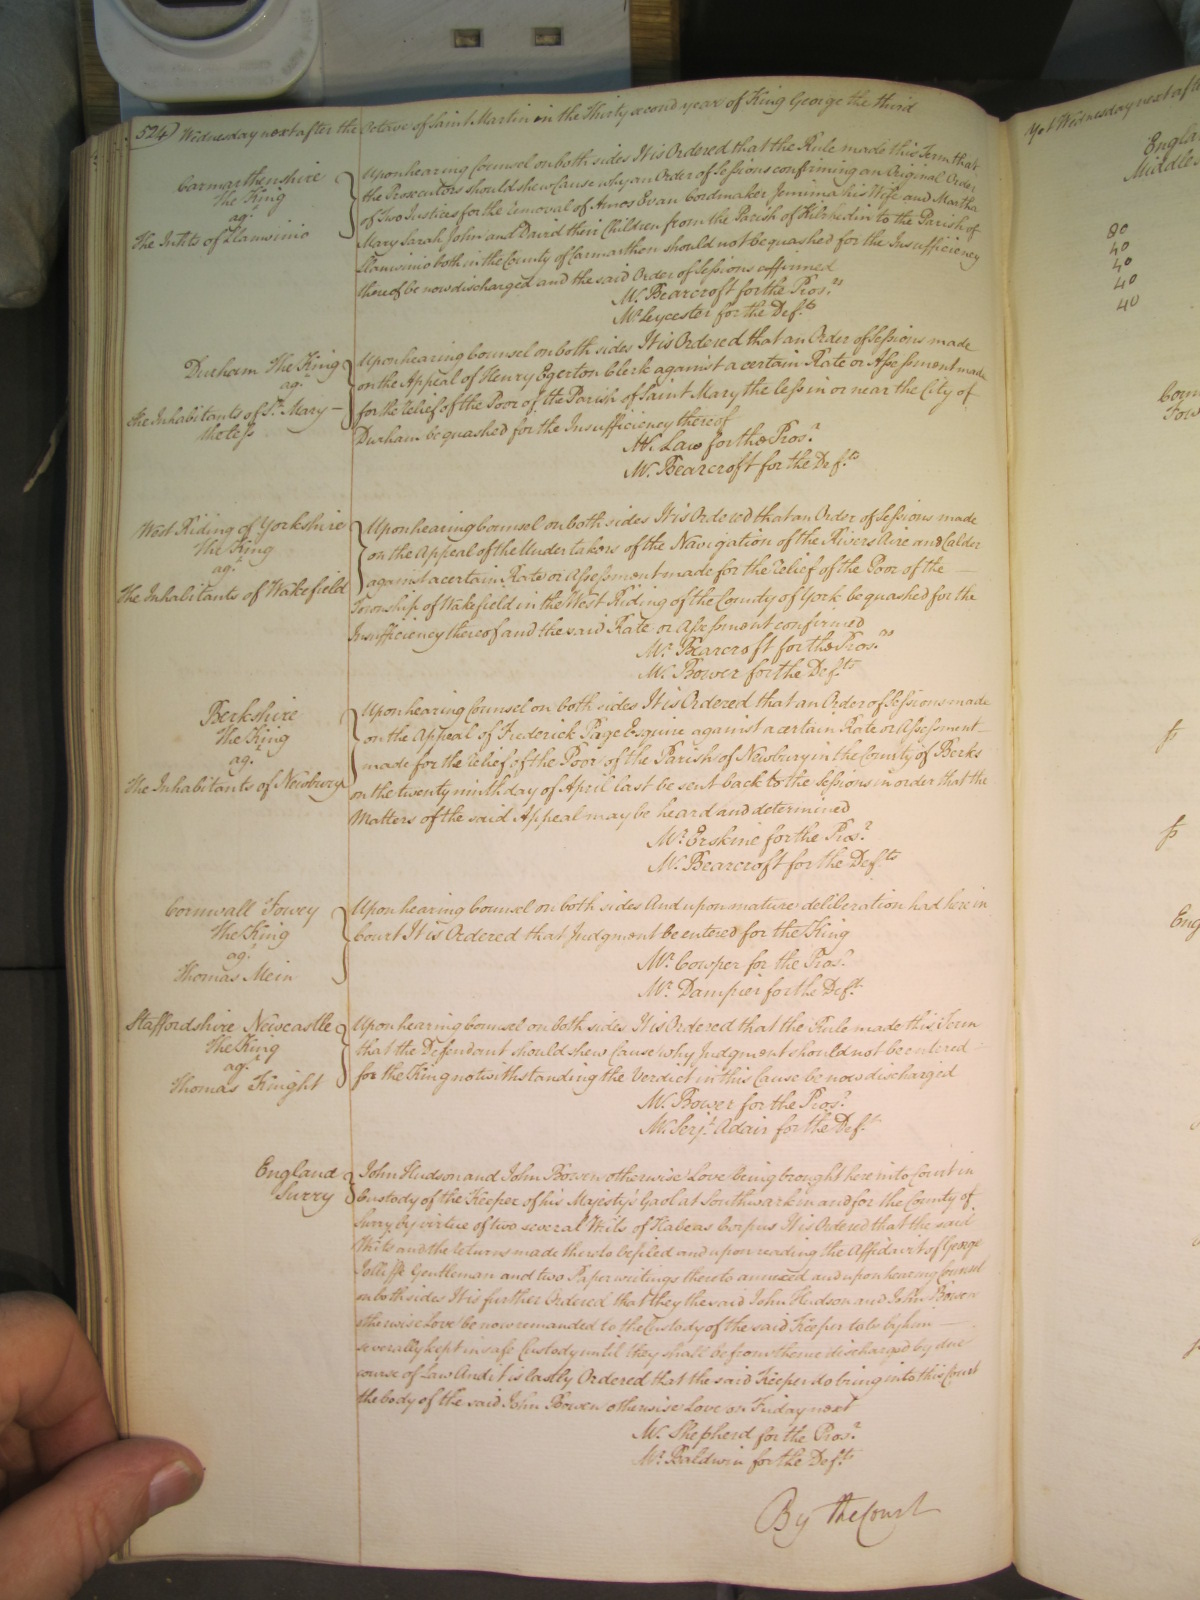 524) Wednesday next after the Octave of Saint Martin in the Thirty second year of King George the third
Carmarthenshire
The King
agt.
The Inhts of Llanwinio
Upon hearing Counsel on both sides It is Ordered that the Rule made this Term that
the Prosecutors should shew Cause why an Order of Sessions confirming an Original Order
of two Justices for the Removal of Amos Evan Cordmaker Jemima his Wife and Martha
Mary Sarah John and David their Children from the Parish of Kilrhedin to the Parish of
Llanwinio both in the County of Carmarthen should not be quashed for the Insufficiency
thereof be now discharged and the said Order of Sessions affirmed
Mr. Bearcroft for the Prosrs
Mr. Leycester for the Defts
Durham The King
agt.
the Inhabitants of St. Mary
the less
Upon hearing Counsel on both sides It is Ordered that an Order of Sessions made
on the Appeal of Henry Egerton Clerk against a certain Rate or Assessment made
for the relief of the Poor of the Parish of Saint Mary the less in or near the City of
Durham be quashed for the Insufficiency thereof
Mr. Law for the Prosr.
Mr. Bearcroft for the Defts
West Riding of Yorkshire
The King
agt.
The Inhabitants of Wakefield
Upon hearing Counsel on both sides It is Ordered that an Order of Sessions made
on the Appeal of the Undertakers of the Navigation of the Rivers Aire and Calder
against a certain Rate or Assessment made for the relief of the Poor of the
Township of Wakefield in the West Riding of the County of York be quashed for the
Insufficiency thereof and the said Rate or Assessment confirmed
Mr. Bearcroft for the Prosrs
Mr. Bower for the Defts
Berkshire
The King
agt.
The Inhabitants of Newbury
Upon hearing Counsel on both sides It is Ordered that an Order of Sessions made
on the Appeal of Frederick Page Esquire against a certain Rate or Assessment
made for the relief of the Poor of the Parish of Newbury in the County of Berks
on the twenty ninth day of April last be sent back to the Sessions in order that the
Matters of the said Appeal may be heard and determined
Mr. Erskine for the Prosr.
Mr. Bearcroft for the Defts
Cornwall Fowey
The King
agt.
Thomas Mein
Upon hearing Counsel on both sides And upon mature deliberation had here in
Court It is Ordered that Judgment be entered for the King
Mr. Cowper for the Prosr.
Mr. Dampier for the Deft
Staffordshire Newcastle
The King
agt.
Thomas Knight
Upon hearing Counsel on both sides It is Ordered that the Rule made this Term
that the Defendant should shew Cause why Judgment should not be entered
for the King notwithstanding the Verdict in this Cause be now discharged
Mr. Bower for the Prosr.
Mr. Serjt. Adair for the Deft
England
Surry
John Hudson and John Bowen otherwise Love being brought here into Court in
Custody of the Keeper of his Majesty's Gaol at Southwark in and for the County of
Surry by virtue of two several Writs of Habeas Corpus It is Ordered that the said
Writs and the returns made thereto be filed and upon reading the Affidavit of George
Jolliffe Gentleman and two Paper writings thereto annexed and upon hearing Counsel
on both sides It is further Ordered that they the said John Hudson and John Bowen
otherwise Love be now remanded to the Custody of the said Keeper to be by him
severally kept in safe Custody until they shall be from thence discharged by due
course of Law And it is lastly Ordered that the said Keeper do bring into this Court
the body of the said John Bowen otherwise Love on Friday next
Mr. Shepherd for the Prosr.
Mr. Baldwin for the Defts
By the Court
Wednesday next after
Engla
Middles
80
40
40
40
40
Corn
Fow
Eng